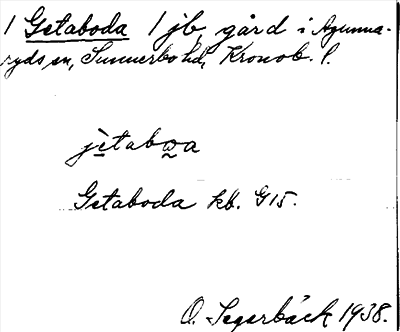 1 Getaboda / jb, gård i Agunna-
ryds sn, Sunnerbo hd, Kronob. l.
jètabωa
Getaboda kb. G15.
O. Segerbäck 1938.